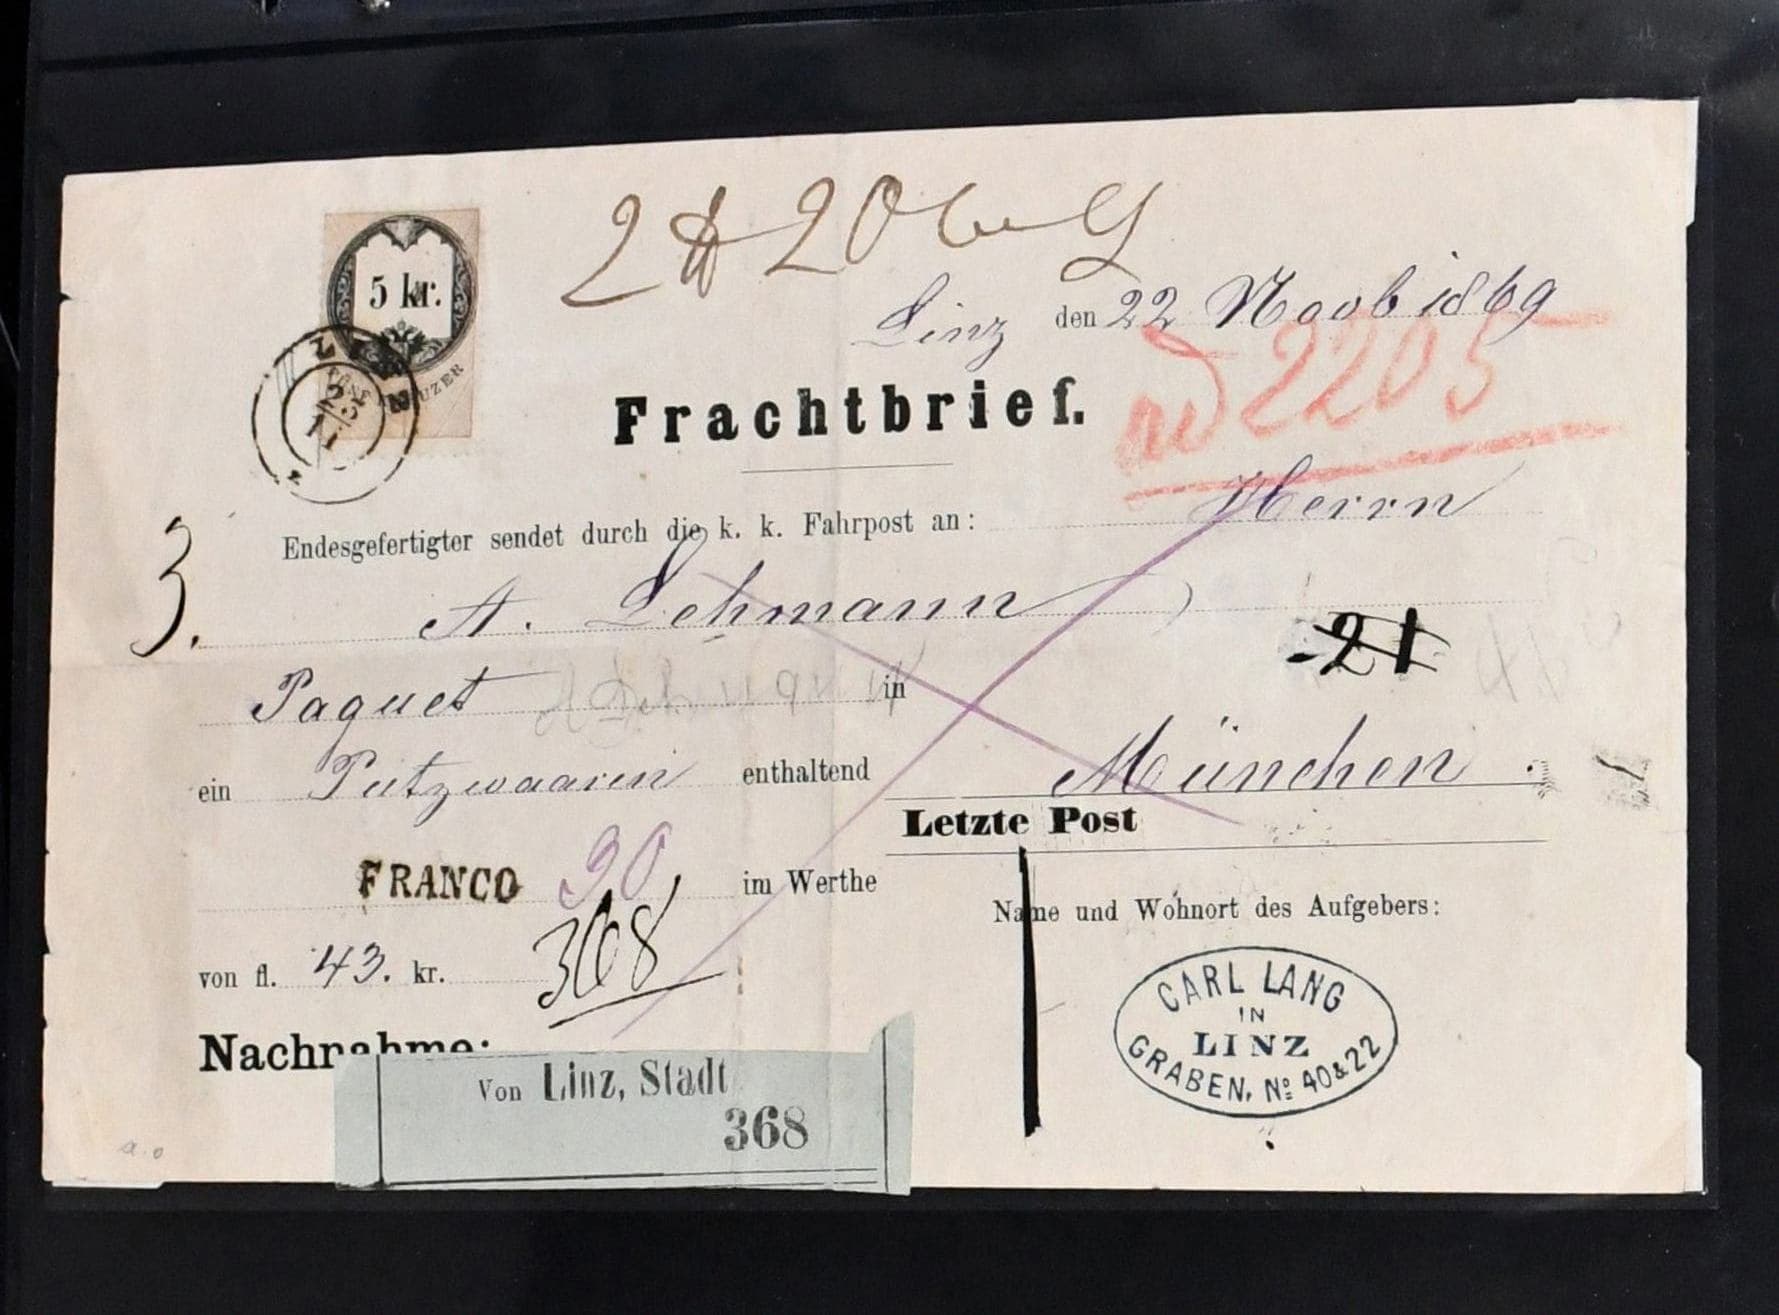 5 kr.
2 ℔ 20
Linz den 22 Novb 1869
Frachtbrief.
2205
Endesgefertigter sendet durch die k. k. Fahrpost an: Herrn
3.
A. Lehmann
21
Paquet in
ein Putzwaaren enthaltend München
Letzte Post
FRANCO 90 im Werthe
Name und Wohnort des Aufgebers:
von fl. 43. kr. 368
CARL LANG
IN
LINZ
GRABEN, No 40 & 22
Nachnahme:
Von Linz, Stadt
368